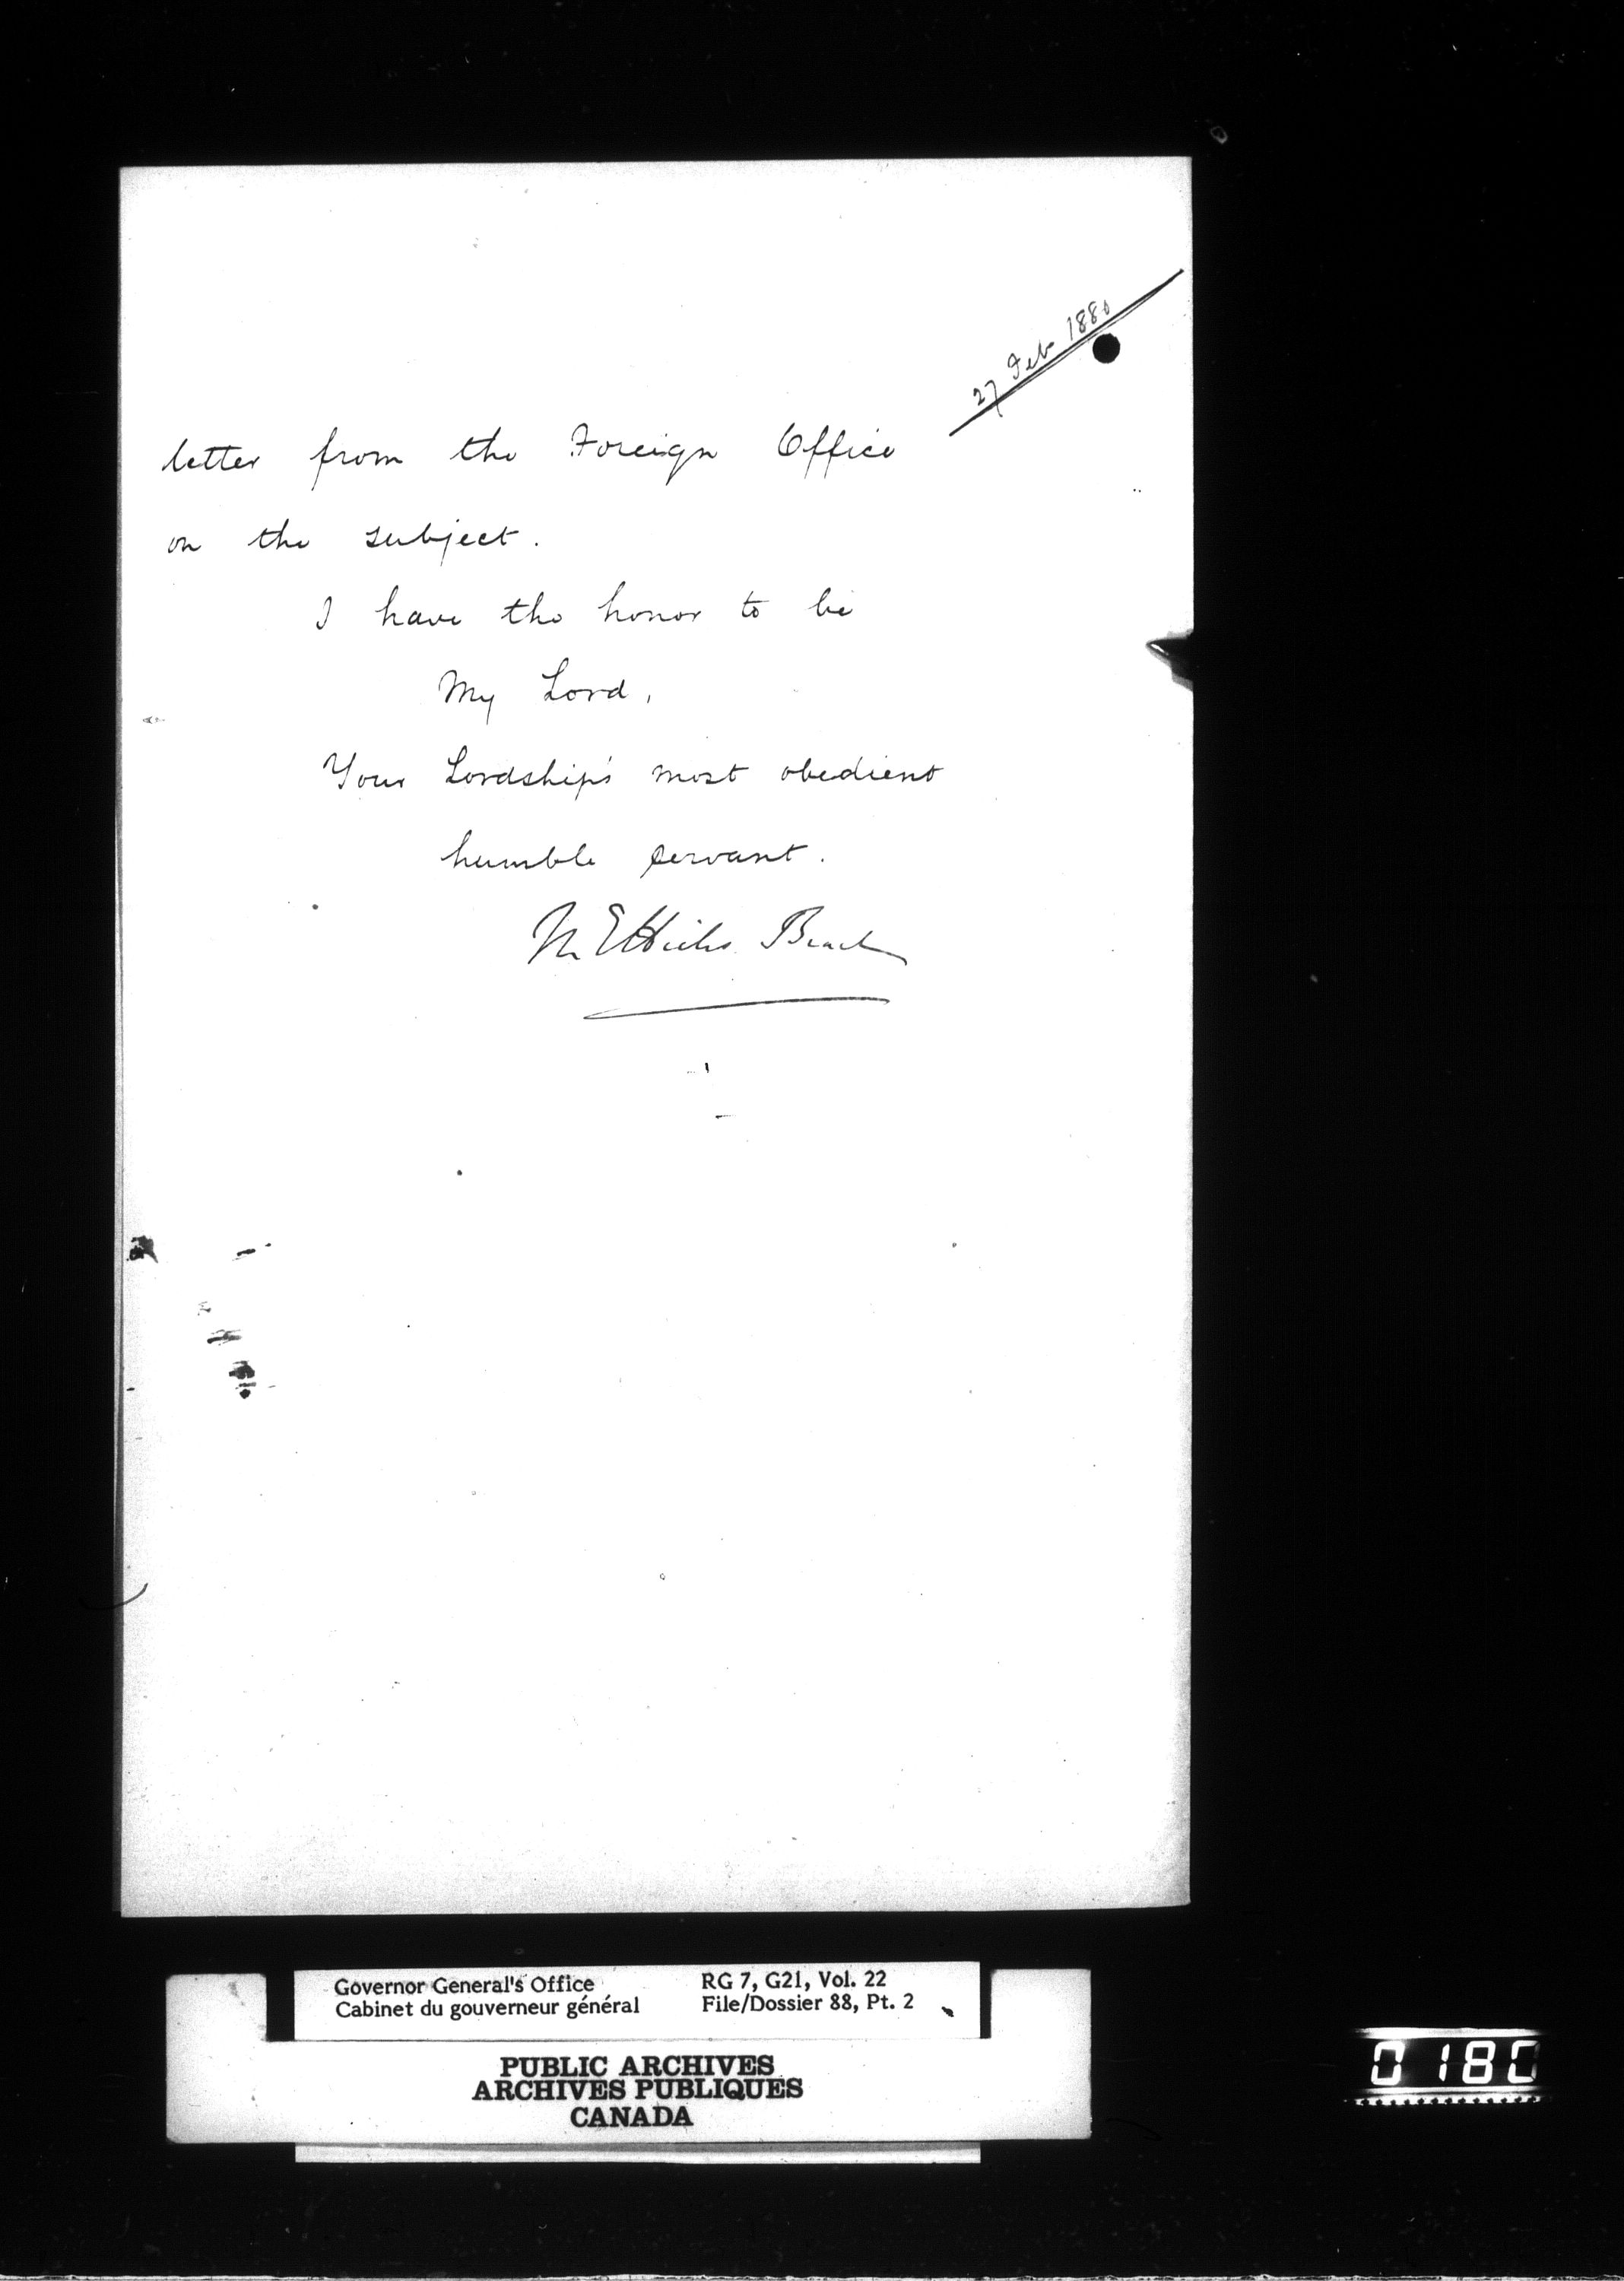 27 Feb 1880
letter from the Foreign Office
on the subject.
I have the honor to be
My Lord,
Your Lordship's most obedient
humble servant.
M E Hicks Beach
Governor General's Office
Cabinet du gouverneur général
RG 7, G21, Vol. 22
File/Dossier 88, Pt. 2
PUBLIC ARCHIVES
ARCHIVES PUBLIQUES
CANADA
0180